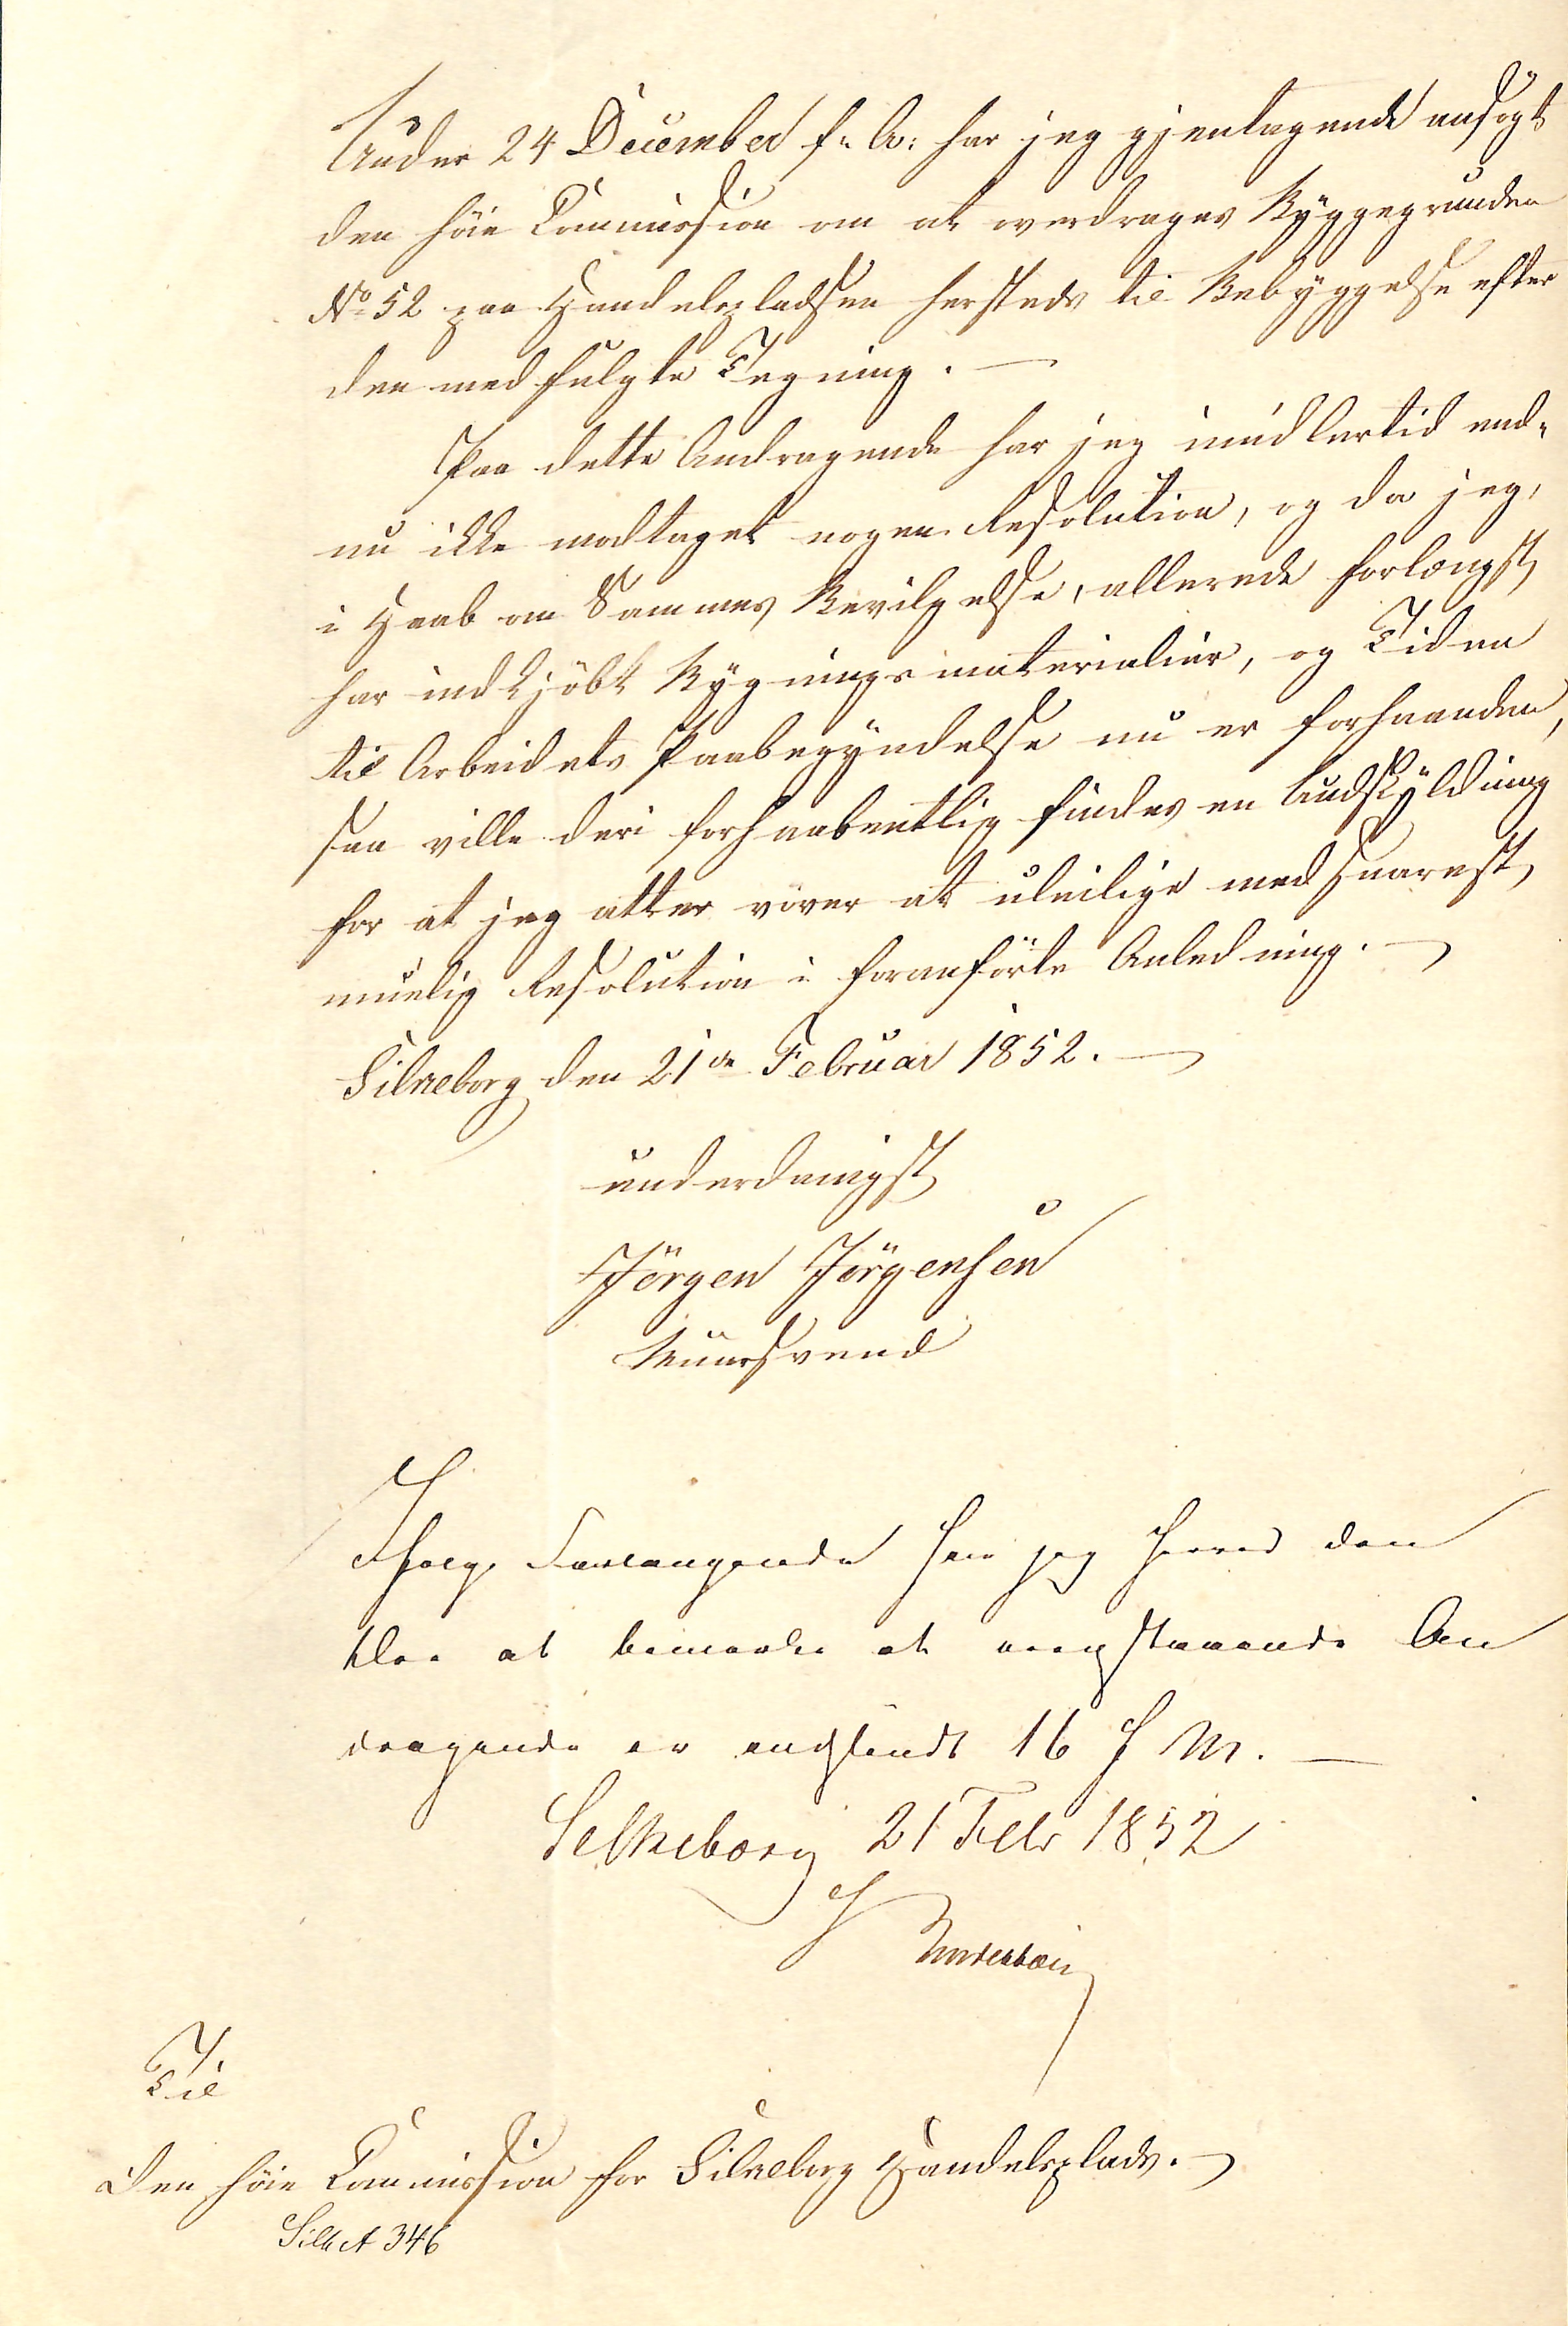 Under 24 December f: A: har jeg gjentagende ansøgt
den höie Commission om at overdrages Byggegrunden
No 52 paa Handelspladsen hersteds til Bebyggelse efter
den medfulgte Tegning. —
Paa dette Andragende har jeg imidlertid end-
nu ikke modtaget nogen Resolution, og da jeg,
i Haab om Sammes Bevilgelse, allerede forlængst
har indkjöbt Bygningsmaterialier, og Tiden
til Arbeidets Paabegyndelse nu er forhaanden,
saa ville deri forhaabentlig findes en Undskyldning
for at jeg atter vover at uleilige med snarest
muelig Resolution i foranförte Anledning. —
Silkeborg den 21de Februar 1852. —
underdanigst
Jörgen Jörgensen
Muursvend
Ifølge Forlangende har jeg herved den
at bemærke at ovenstaaende An
dragende er indsendt 16 f M. —
Selkeborg 21 Febr 1852
Til
Den höie Commission for Silkeborg Handelsplads. —
Silk A 346